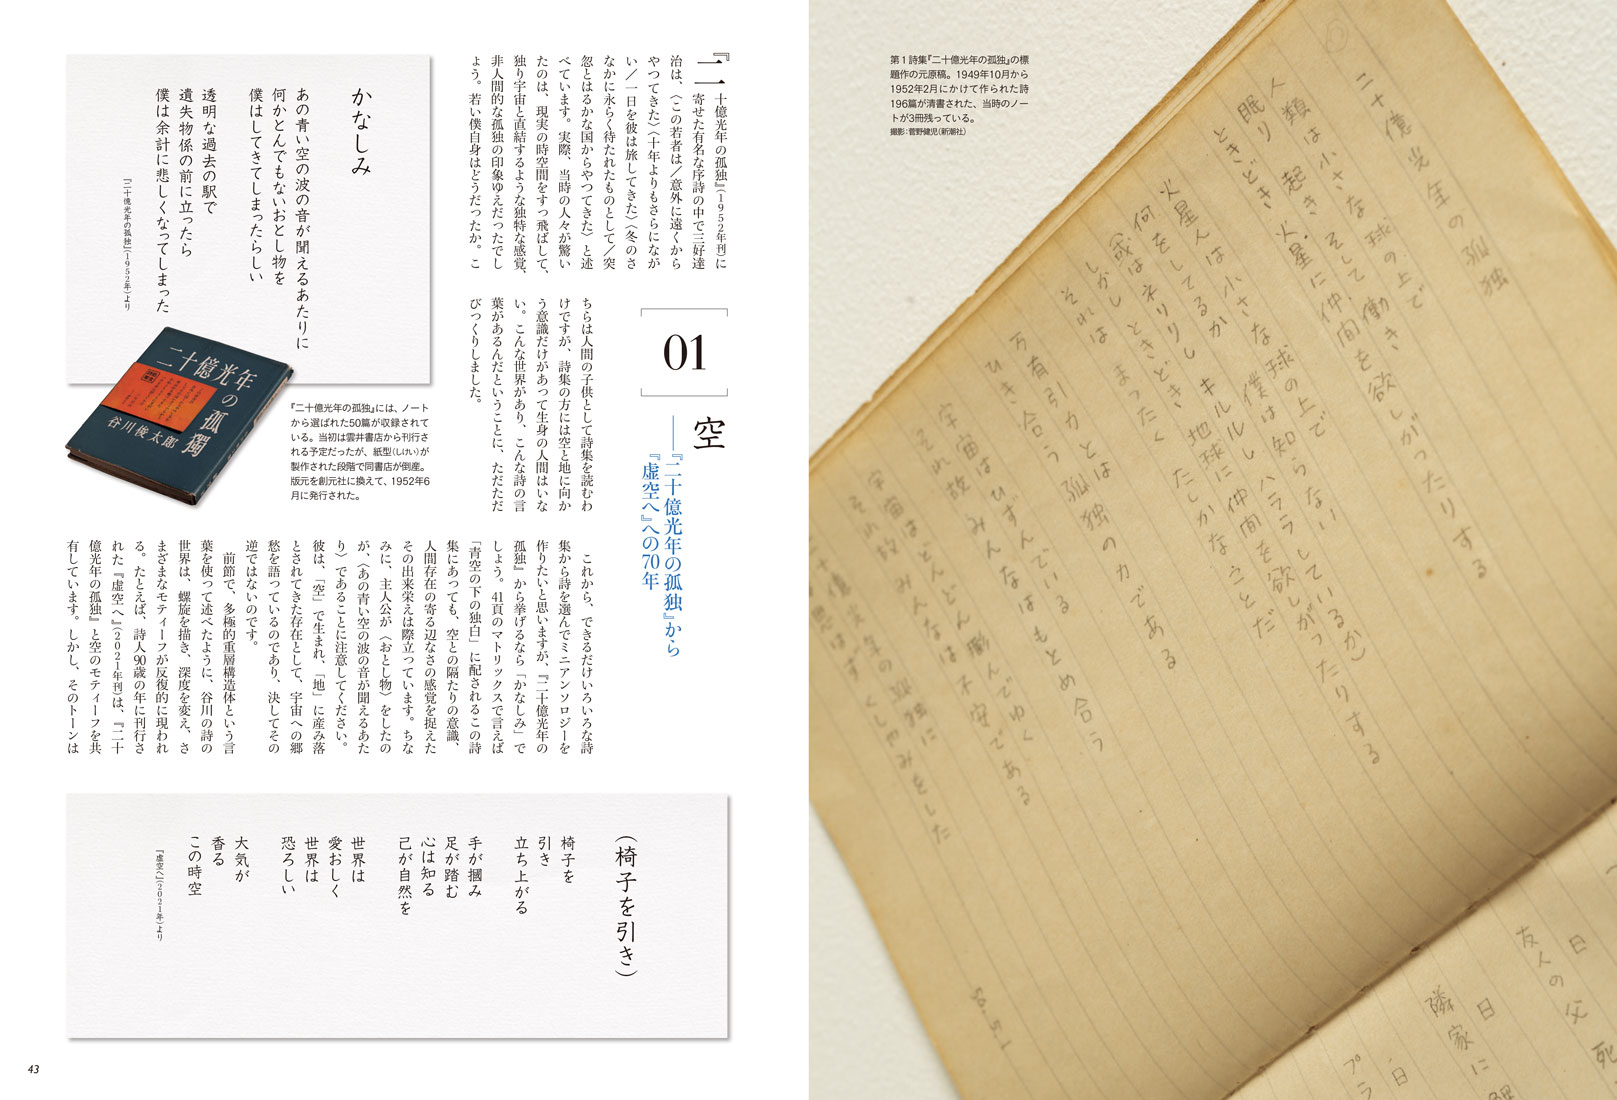 第1詩集『二十億光年の孤独』の標
題作の元原稿。1949年10月から
1952年2月にかけて作られた詩
196篇が清書された、当時のノー
トが3冊残っている。
撮影:菅野健児(新潮社)
二十億光年の孤独
人類は小さな球の上で
眠り 起き そして働き
ときどき 火星に仲間を欲しがったりする
火星人は小さな球の上で
何をしてるか 僕は知らない
(或はネリリし キルルし ハララしているか)
しかし ときどき 地球に仲間を欲しがったりする
それは まったく たしかなことだ
万有引力とは
ひき合う 孤独の力である
宇宙はひずんでいる
それ故 みんなはもとめ合う
宇宙はどんどん膨んでゆく
それ故 みんなは不安である
50.5.1
日
友人の父 死
日
隣家に
日
01
空
――『二十億光年の孤独』から
『虚空へ』への70年
『二十億光年の孤独』(1952年刊)に
寄せた有名な序詩の中で三好達
治は、〈この若者は/意外に遠くから
やつてきた〉〈十年よりもさらになが
い/一日を彼は旅してきた〉〈冬のさ
なかに永らく待たれたものとして/突
忽とはるかな国からやつてきた〉と述
べています。実際、当時の人々が驚い
たのは、現実の時空間をすっ飛ばして、
独り宇宙と直結するような独特な感覚、
非人間的な孤独の印象ゆえだったでし
ょう。若い僕自身はどうだったか。こ
ちらは人間の子供として詩集を読むわ
けですが、詩集の方には空と地に向か
う意識だけがあって生身の人間はいな
い。こんな世界があり、こんな詩の言
葉があるんだということに、ただただ
びっくりしました。
これから、できるだけいろいろな詩
集から詩を選んでミニアンソロジーを
作りたいと思いますが、『二十億光年の
孤独』から挙げるなら「かなしみ」で
しょう。41頁のマトリックスで言えば
「青空の下の独白」に配されるこの詩
集にあっても、空との隔たりの意識、
人間存在の寄る辺なさの感覚を捉えた
その出来栄えは際立っています。ちな
みに、主人公が〈おとし物〉をしたの
が、〈あの青い空の波の音が聞えるあた
り〉であることに注意してください。
彼は、「空」で生まれ、「地」に産み落
とされてきた存在として、宇宙への郷
愁を語っているのであり、決してその
逆ではないのです。
前節で、多極的重層構造体という言
葉を使って述べたように、谷川の詩の
世界は、螺旋を描き、深度を変え、さ
まざまなモティーフが反復的に現われ
る。たとえば、詩人90歳の年に刊行さ
れた『虚空へ』(2021年刊)は、『二十
億光年の孤独』と空のモティーフを共
有しています。しかし、そのトーンは
かなしみ
あの青い空の波の音が聞えるあたりに
何かとんでもないおとし物を
僕はしてきてしまったらしい
透明な過去の駅で
遺失物係の前に立ったら
僕は余計に悲しくなってしまった
『二十億光年の孤独』(1952年)より
二十億光年の孤獨
谷川俊太郎
『二十億光年の孤独』には、ノート
から選ばれた50篇が収録されて
いる。当初は雲井書店から刊行さ
れる予定だったが、紙型(しけい)が
製作された段階で同書店が倒産。
版元を創元社に換えて、1952年6
月に発行された。
(椅子を引き)
椅子を
引き
立ち上がる
手が摑み
足が踏む
心は知る
己が自然を
世界は
愛おしく
世界は
恐ろしい
大気が
香る
この時空
『虚空へ』(2021年)より
43